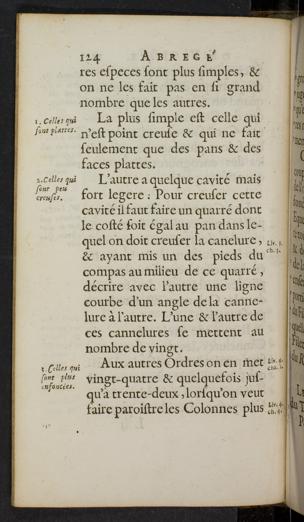 124 ABREGÉ
res especes sont plus simples, &
on ne les fait pas en si grand
nombre que les autres.
1. Celles qui
sont plattes.
La plus simple est celle qui
n'est point creuse & qui ne fait
seulement que des pans & des
faces plattes.
2. Celles qui
sont peu
creuses.
L'autre a quelque cavité mais
fort legere : Pour creuser cette
cavité il faut faire un quarré dont
le costé soit égal au pan dans le-
quel on doit creuser la canelure,
Liv. 4.
ch. 3.
& ayant mis un des pieds du
compas au milieu de ce quarré,
décrire avec l'autre une ligne
courbe d'un angle de la canne-
lure à l'autre. L'une & l'autre de
ces cannelures se mettent au
nombre de vingt.
3. Celles qui
sont plus
enfoncées.
Aux autres Ordres on en met
vingt-quatre & quelquefois jus-
qu'à trente-deux, lorsqu'on veut
faire paroistre les Colonnes plus
Liv. 4.